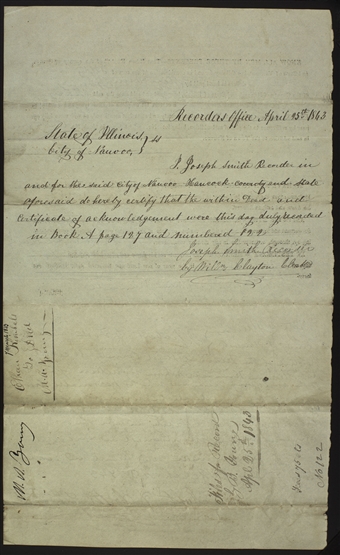 Recorders Office April 25th 1843
State of Illinois, } ss
City of Nauvoo,
I, Joseph Smith Recorder in
and for the said City of Nauvoo Hancock county and state
aforesaid do hereby certify that the within Deed and
certificate of acknowledgement were this day duly recorded
in Book A page 127 and numbered 122.
Joseph Smith Recorder
by Wm. Clayton Clerk
Kimball
To Deed
Young
Filed for Record
Apl 25th 1843
No 122